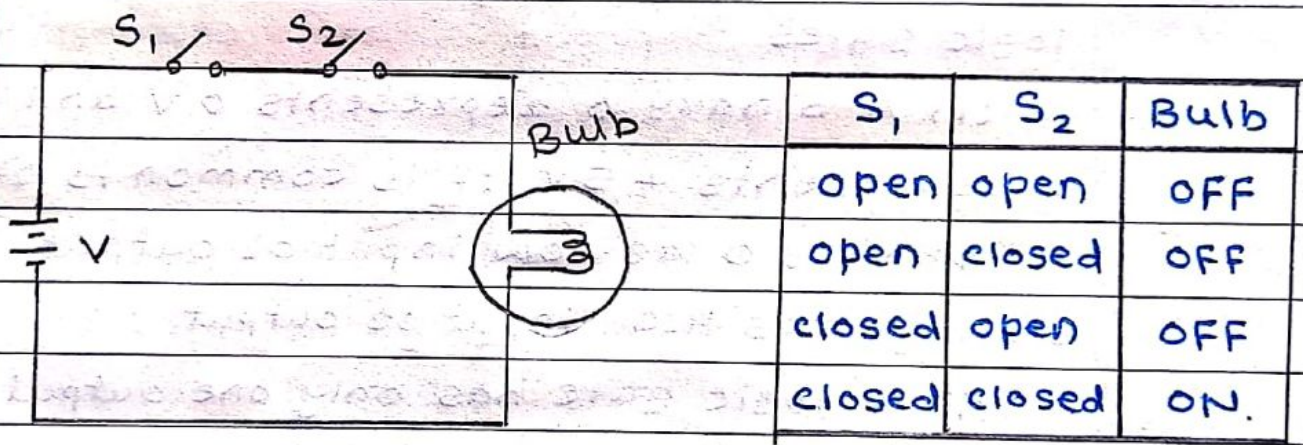 S₁ S₂
Bulb
V
S₁ S₂ Bulb
open open OFF
open closed OFF
closed open OFF
closed closed ON.